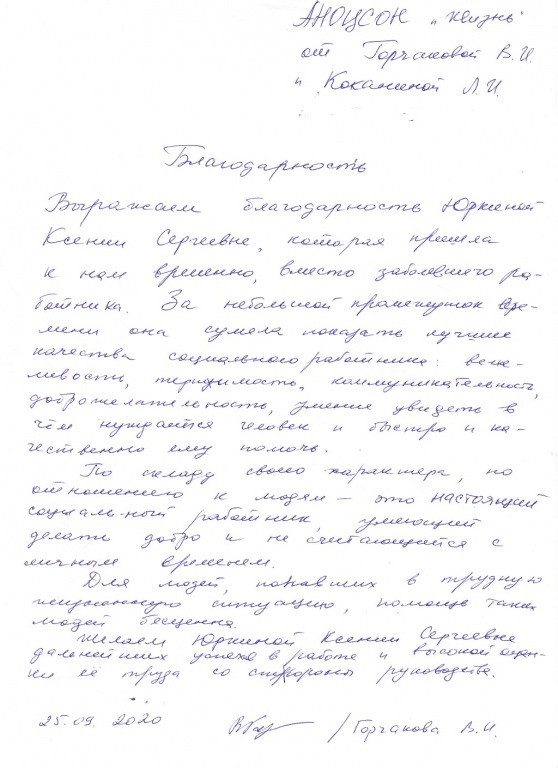 АНОЦСОН „Жизнь"
от Горчаковой В.И.
и Коканиной Л.И.
Благодарность
Выражаем благодарность Юркиной
Ксении Сергеевне, которая пришла
к нам временно, вместо заболевшего ра-
ботника. За небольшой промежуток вре-
мени она сумела показать лучшие
качества социального работника: веж-
ливость, терпимость, коммуникательность,
доброжелательность, умение увидеть в
чём нуждается человек и быстро и ка-
чественно ему помочь.
По складу своего характера, по
отношению к людям – это настоящий
социаль-ный работник, умеющий
делать добро и не считающийся с
личным временем.
Для людей, попавших в трудную
жизненную ситуацию, помощь таких
людей бесценна.
Желаем Юркиной Ксении Сергеевне
дальнейших успехов в работе и высокой оцен-
ки её труда со стороны руководства.
25.09. 2020 /Горчакова В.И.